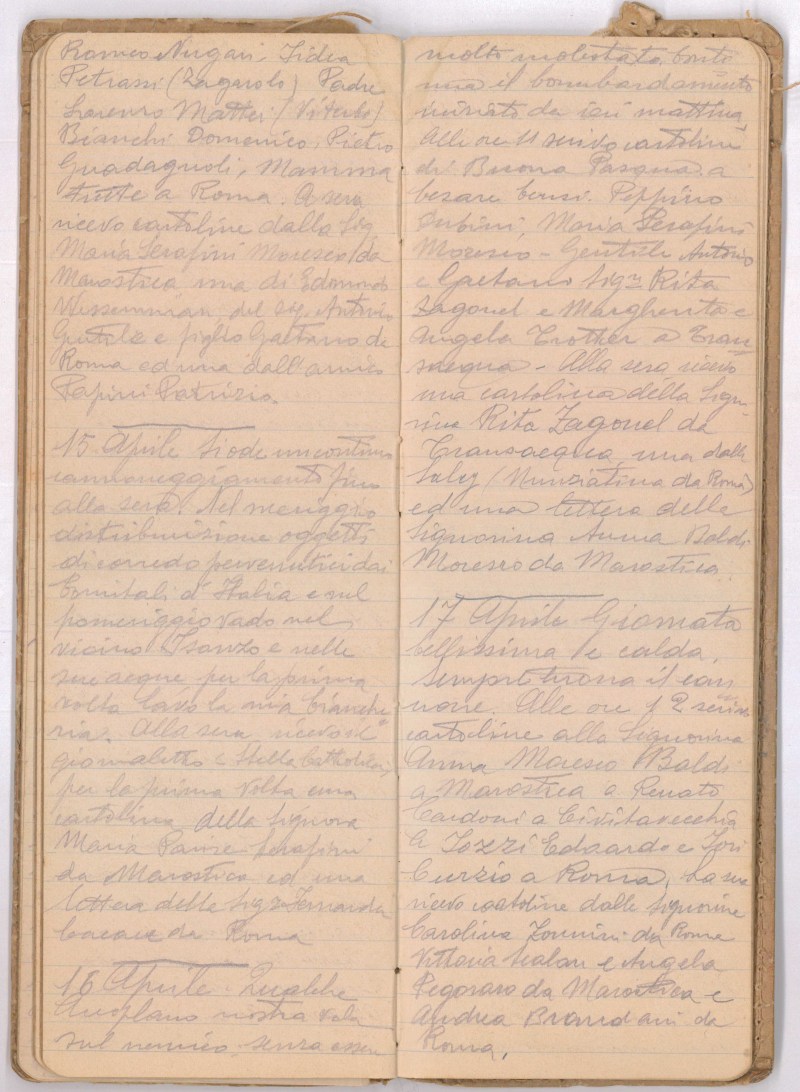 Romeo Nugari, Lidia
Petrassi (Zagarolo) Padre
Lorenzo Mattei (Viterbo)
Bianchi Domenico, Pietro
Guadagnoli, Mamma
tutte a Roma. A sera
ricevo cartoline dalla Sig
Maria Serafini Moresco da
Marostica una di Edmondo
del Sig. Antonio
Gentile e figlio Gaetano da
Roma ed una dall'amico
Papini Patrizio.
15 Aprile Si ode un continuo
cannoneggiamento fino
alla sera. Nel meriggio
distribuizione oggetti
di corredo pervenutici dai
Comitati d'Italia e nel
pomeriggio vado nel
vicino Isonzo e nelle
sue acque per la prima
volta lavo la mia bianche
ria. Alla sera ricevo il
giornaletto "Stella Cattolica",
per la prima volta una
cartolina della Signora
Maria Serafini
da Marostica ed una
lettera della Sigra Fernanda
da Roma
16 Aprile - Qualche
Aeroplano nostro vola
sul nemico senza esser
molto molestato, conti
nua il bombardamento
iniziato da ieri mattina.
Alle ore 11 scrivo cartoline
di Buona Pasqua a
Cesare Censi. Peppino
Maria Serafini
Moresco - Gentile Antonio
e Gaetano Sigre Rita
Zagonel e Margherita e
Angela Trotter a Tran-
sacqua - Alla sera ricevo
una cartolina della Signo
rina Rita Zagonel da
Transacqua una dalle
(Nunziatina da Roma)
ed una lettera della
Signorina Anna Baldi
Moresco da Marostica.
17 Aprile Giornata
bellissima e calda,
sempre tuona il can
none. Alle ore 12 scrivo
cartoline alla Signorina
Anna Moresco Baldi
a Marostica a Renato
Cardoni a Civitavecchia
A Iozzi Edoardo e Iori
Curzio a Roma, La sera
ricevo cartoline dalle Signorine
Carolina da Roma
Vittoria Scalan e Angela
Pegoraro da Marostica e
Andrea Brandani da
Roma.